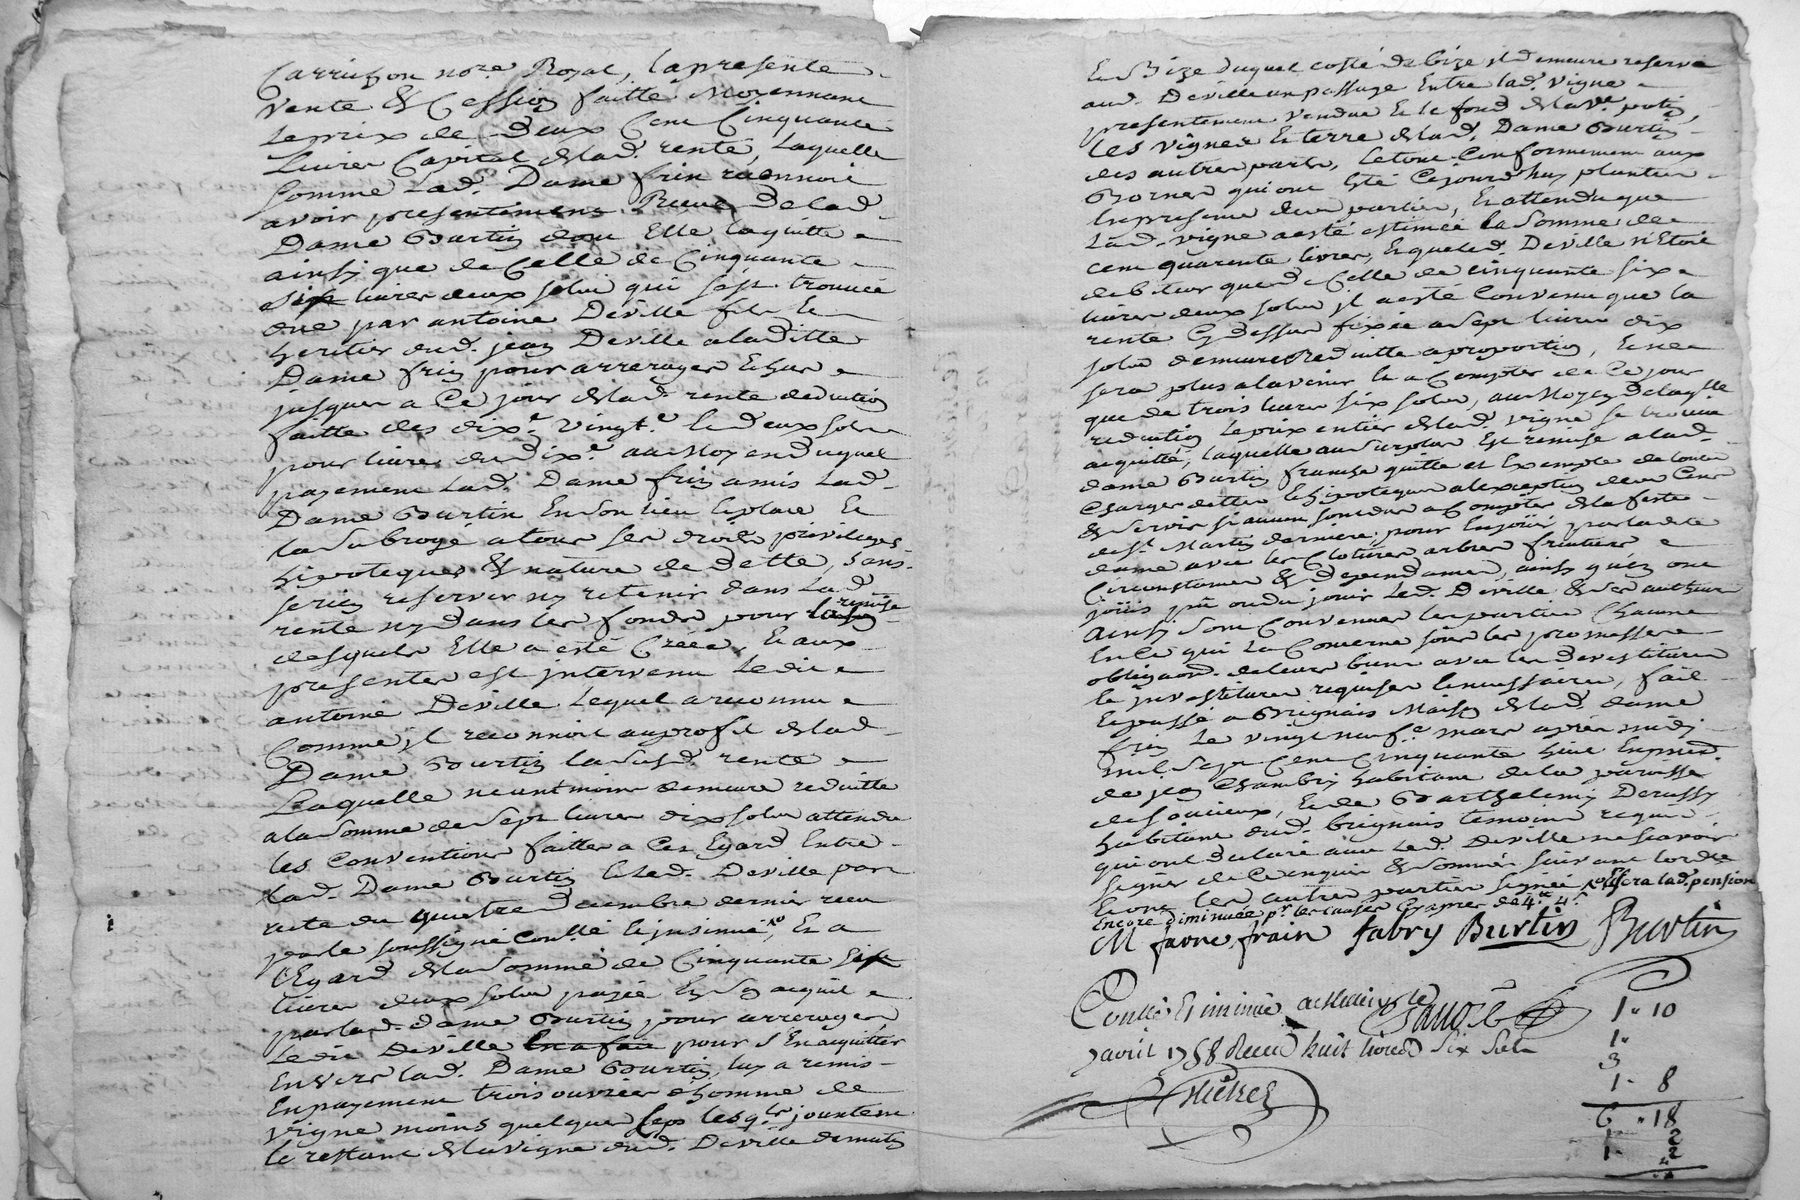 Carrichon no.re Royal, la presente
vente & Cession faitte Moyennant
le prix de deux Cent Cinquante
Livres Capital de lad. rente, laquelle
somme Lad. Dame frin reconnoit
avoir presentement Receu de lad.
Dame Burtin dont Elle la quitte
ainsy que de Celle de Cinquante
six livres deux sols qui s'est trouvée
due par antoine Deville fils et
heritier dud. jean Deville a laditte
Dame frin pour arrerages Echus
jusques a Ce jour de lad. rente deduction
faitte des dix.e vingt.e et deux sols
pour livres du dix.e au Moyen duquel
payement Lad. Dame frin a mis Lad.
Dame Burtin En son lieu & place Et
la subrogé a tous ses droits privileges
hipoteques & nature de dette, sans
se rien reserver ny retenir dans Lad.
rente ny dans les fonds pour remise
desquels Elle a esté Créée, Et aux
presentes est intervenu Ledit
antoine Deville Lequel a reconnu
Comme il reconnoit au profit de lad.
Dame Burtin la susd. rente
Laquelle neantmoins demeure reduitte
a la somme de sept livres dix sols attendu
les Conventions faittes a Cet Egard Entre
lad. Dame Burtin & led. Deville par
acte du quatre decembre dernier receu
par le soussigné Con.llé & insinué, Et a
l'Egard de la somme de Cinquante six
livres deux sols payée En son acquit
par lad. dame Burtin pour arrerages
Ledit Deville pour s'En acquitter
Envers lad. Dame Burtin, luy a remis
En payement trois ouvrées d'homme de
vigne moins quelques seps lesq.ls jouxtent
le restant de la vigne dud. Deville de matin
Et Bize duquel costé de bize il demeure reservé
aud. Deville un passage Entre lad. vigne
presentement vendue Et le fond
les vignes Et terre de lad. Dame Burtin
des autres parts, Le tout Conformement aux
Bornes qui ont Eté Cejourd'huy plantées
En presence des parties, Et attendu que
Lad. vigne a esté estimée la somme de
cent quarente livres, Et que led. Deville n'Etoit
debiteur que de Celle de cinquante six
livres deux sols il a esté Convenu que la
rente Cy dessus fixée a sept livres dix
sols demeure Reduitte a proportion, Et ne
sera plus a l'avenir Et a Compter de Ce jour
que de trois livres six sols, au Moyen de laq.lle
reduction Le prix entier de lad. vigne se trouve
acquitté, laquelle au surplus Est remise a lad.
dame Burtin franche quitte et Exempte de toutes
Charges dettes & hipoteques a l'exception des Cens
& servis si aucuns sont dus a Compter de la feste
de S.t Martin derniere, pour En jouir par laditte
dame avec les Clotures arbres fruitiers
Circonstances & dependances, ainsy qu'en ont
jouis pu ou du jouir Led. Deville & ses autheurs
Ainsy sont Convenues les parties Chacune
En Ce qui La Concerne sous les promesses
obligaon. de leurs biens avec les devestitures
& investitures requises & necessaires, fait
Et passé a Brignais Maison de lad. dame
frin Le vingt neuf.e mars apres midy
mil sept Cent Cinquante huit En presence
de jean Chambry habitant de la paroisse
de soucieux, Et de Barthelemy Derussy
habitant dud. brignais temoins requis
qui ont declaré avec Led. Deville ne scavoir
signer de Ce enquis & sommés suivant l'ordce
Et ont les autres parties signé sera lad. pension
Encore diminuée p.r les causes Cy apres de 4 ll 4 s.
M favre frain fabry Burtin Burtin
Con.llé Et insinué
7 avril 1758 Receu huit livres six sols
1 " 10
1 "
3
1 - 8
6 " 18
1 - 2
1 - 2